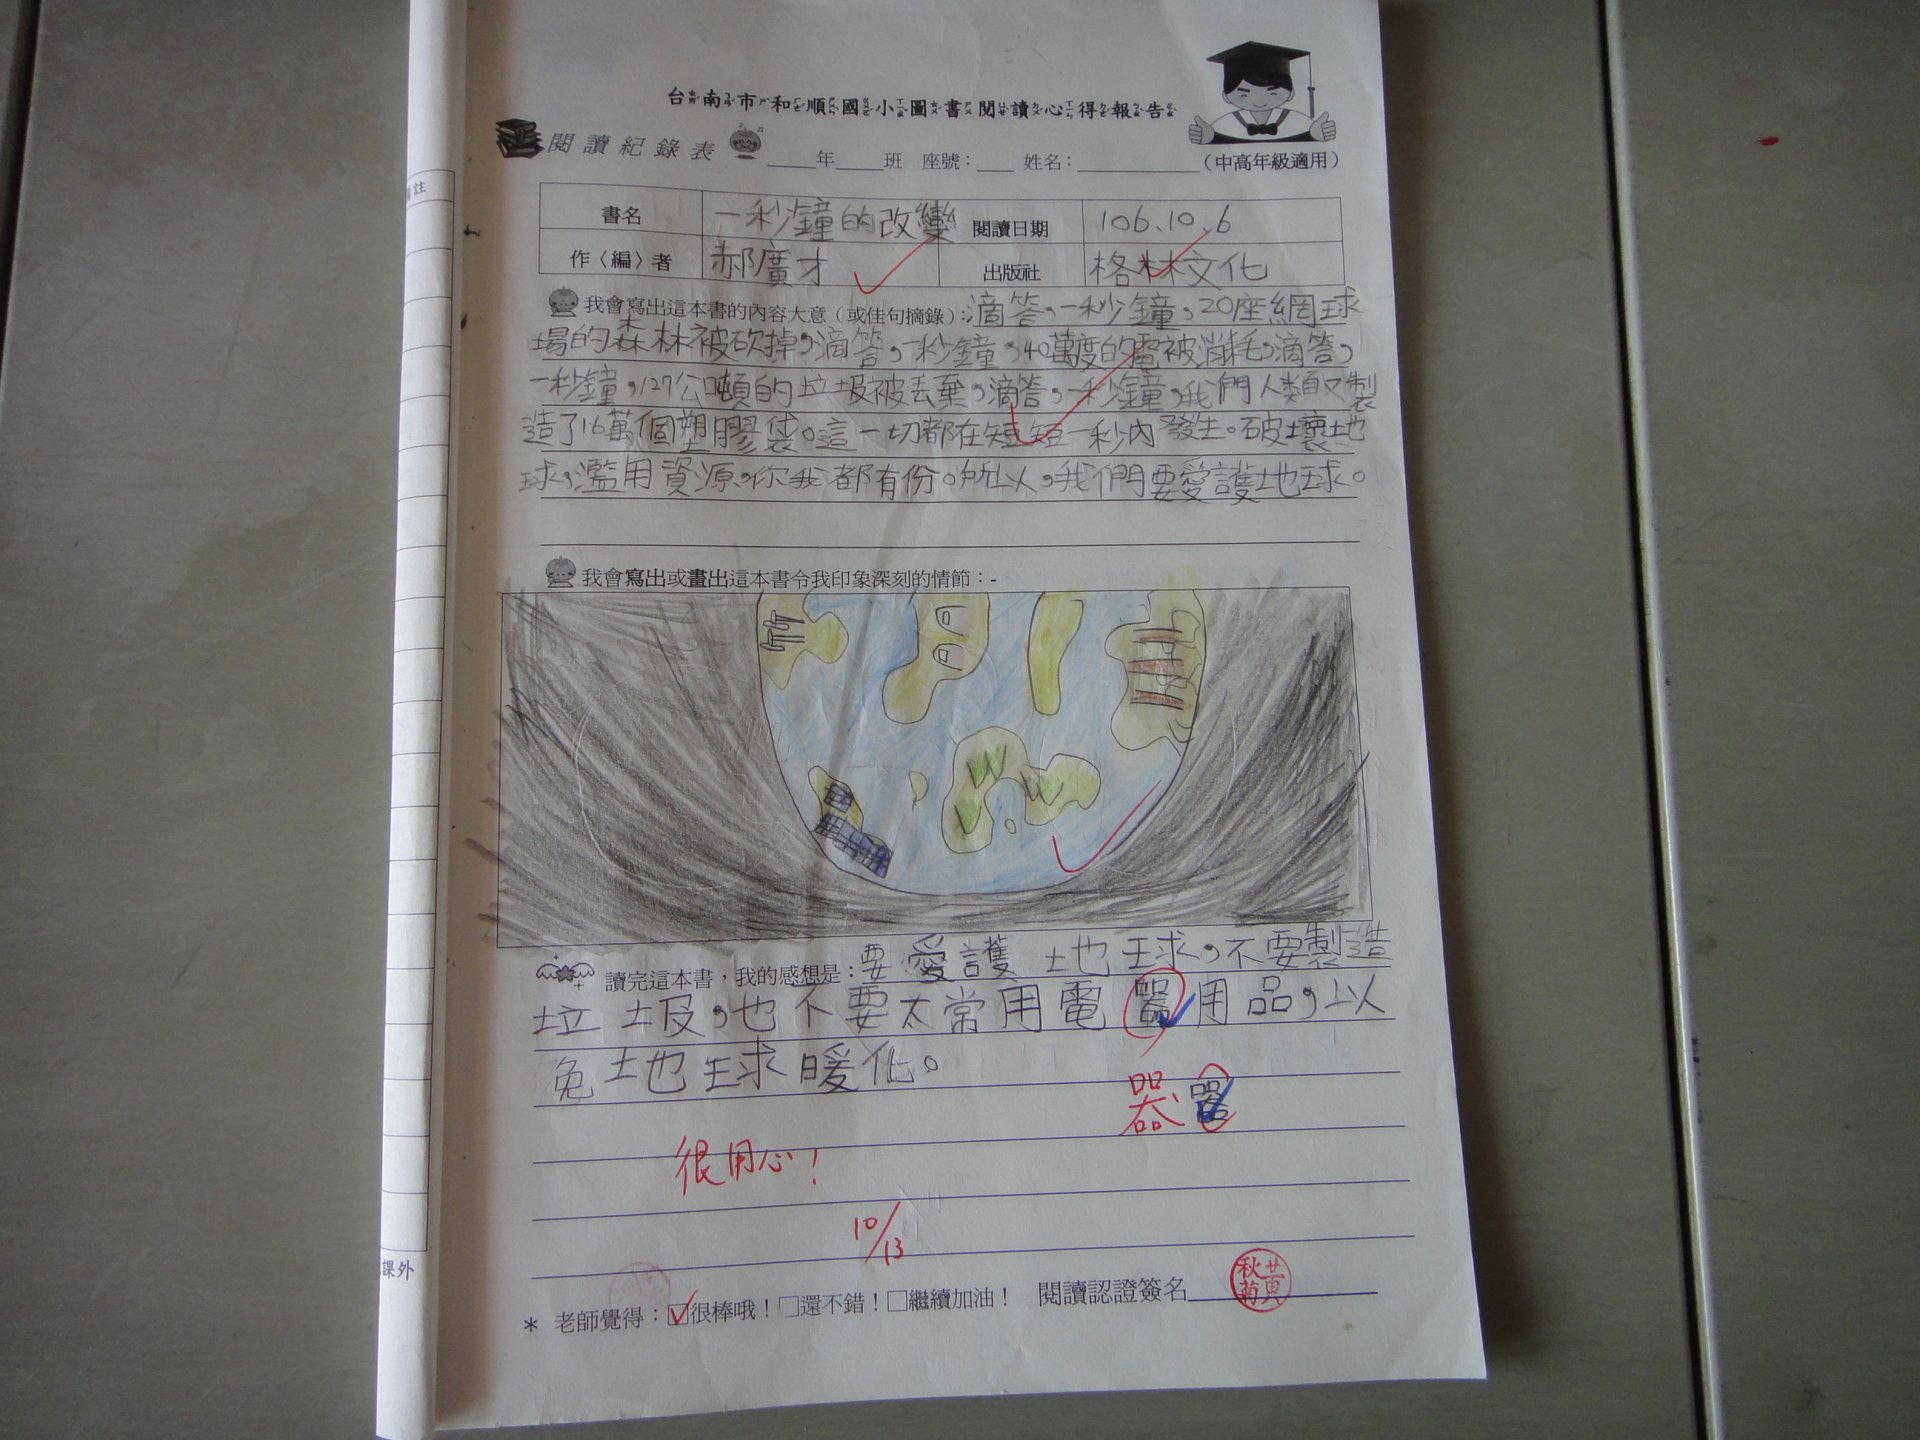 台南市和順國小圖書閱讀心得報告
閱讀紀錄表 ____年____班 座號：___ 姓名：__________（中高年級適用）
書名 一秒鐘的改變 閱讀日期 106.10.6
作〈編〉者 郝廣才 出版社 格林文化
我會寫出這本書的內容大意（或佳句摘錄）：滴答，一秒鐘，20座網球
場的森林被砍掉，滴答，一秒鐘，40萬度的電被消耗，滴答，
一秒鐘，127公噸的垃圾被丟棄，滴答，一秒鐘，我們人類又製
造了16萬個塑膠袋。這一切都在短短一秒內發生。破壞地
球，濫用資源，你我都有份。所以，我們要愛護地球。
我會寫出或畫出這本書令我印象深刻的情節：-
讀完這本書，我的感想是：要愛護地球，不要製造
垃圾，也不要太常用電器用品，以
免地球暖化。
器 器
很用心！
10/13
* 老師覺得：☑很棒哦！□還不錯！□繼續加油！ 閱讀認證簽名 黃秋菊
備註
課外